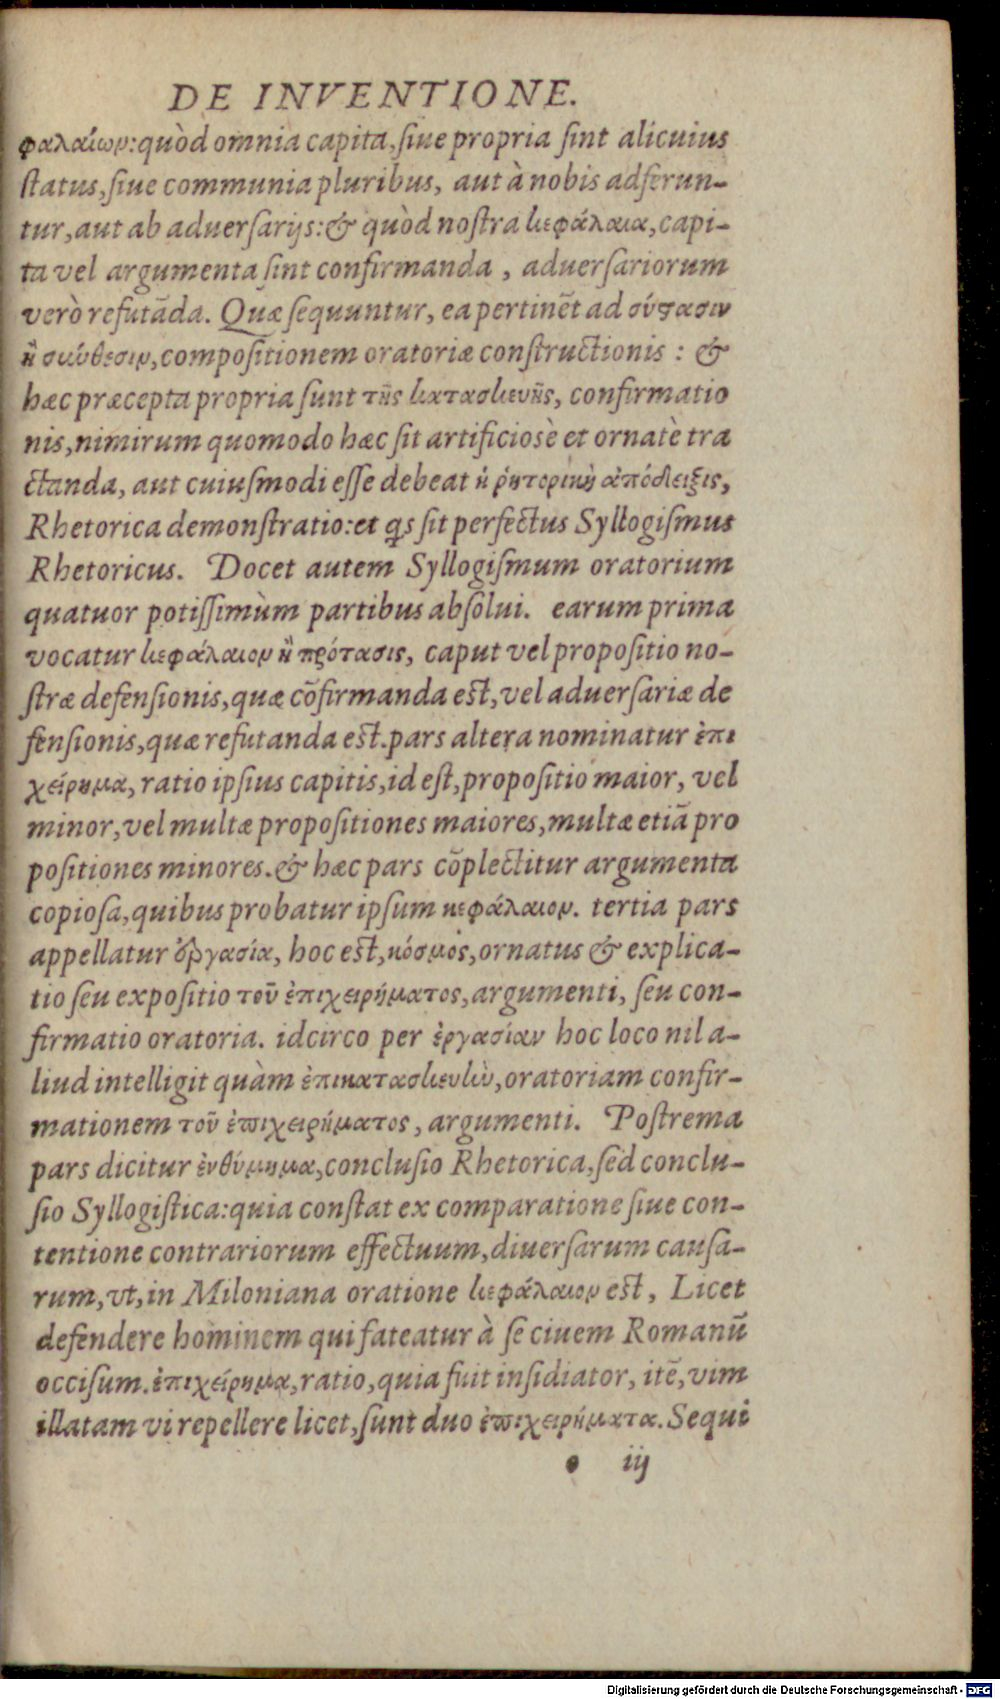 DE INVENTIONE.
φαλαίων: quòd omnia capita, siue propria sint alicuius
status, siue communia pluribus, aut à nobis adferun-
tur, aut ab aduersarijs: & quòd nostra κεφάλαια, capi-
ta vel argumenta sint confirmanda, aduersariorum
verò refutāda. Quæ sequuntur, ea pertinēt ad σύστασιν
ἢ σύνθεσιν, compositionem oratoriæ constructionis: &
hæc præcepta propria sunt τῆς κατασκευῆς, confirmatio
nis, nimirum quomodo hæc sit artificiosè et ornatè tra
ctanda, aut cuiusmodi esse debeat ἡ ῥητορικὴ ἀπόδειξις,
Rhetorica demonstratio: et qs sit perfectus Syllogismus
Rhetoricus. Docet autem Syllogismum oratorium
quatuor potissimùm partibus absolui. earum prima
vocatur κεφάλαιον ἢ πρότασις, caput vel propositio no-
stræ defensionis, quæ cōfirmanda est, vel aduersariæ de
fensionis, quæ refutanda est. pars altera nominatur ἐπι
χείρημα, ratio ipsius capitis, id est, propositio maior, vel
minor, vel multæ propositiones maiores, multæ etiā pro
positiones minores. & hæc pars cōplectitur argumenta
copiosa, quibus probatur ipsum κεφάλαιον. tertia pars
appellatur ἐργασία, hoc est, κόσμος, ornatus & explica-
tio seu expositio τοῦ ἐπιχειρήματος, argumenti, seu con-
firmatio oratoria. idcirco per ἐργασίαν hoc loco nil a-
liud intelligit quàm ἐπικατασκευὴν, oratoriam confir-
mationem τοῦ ἐπιχειρήματος, argumenti. Postrema
pars dicitur ἐνθύμημα, conclusio Rhetorica, sed conclu-
sio Syllogistica: quia constat ex comparatione siue con-
tentione contrariorum effectuum, diuersarum causa-
rum, vt, in Miloniana oratione κεφάλαιον est, Licet
defendere hominem qui fateatur à se ciuem Romanū
occisum. ἐπιχείρημα, ratio, quia fuit insidiator, itē, vim
illatam vi repellere licet, sunt duo ἐπιχειρήματα. Sequi
iij
Digitalisierung gefördert durch die Deutsche Forschungsgemeinschaft - DFG